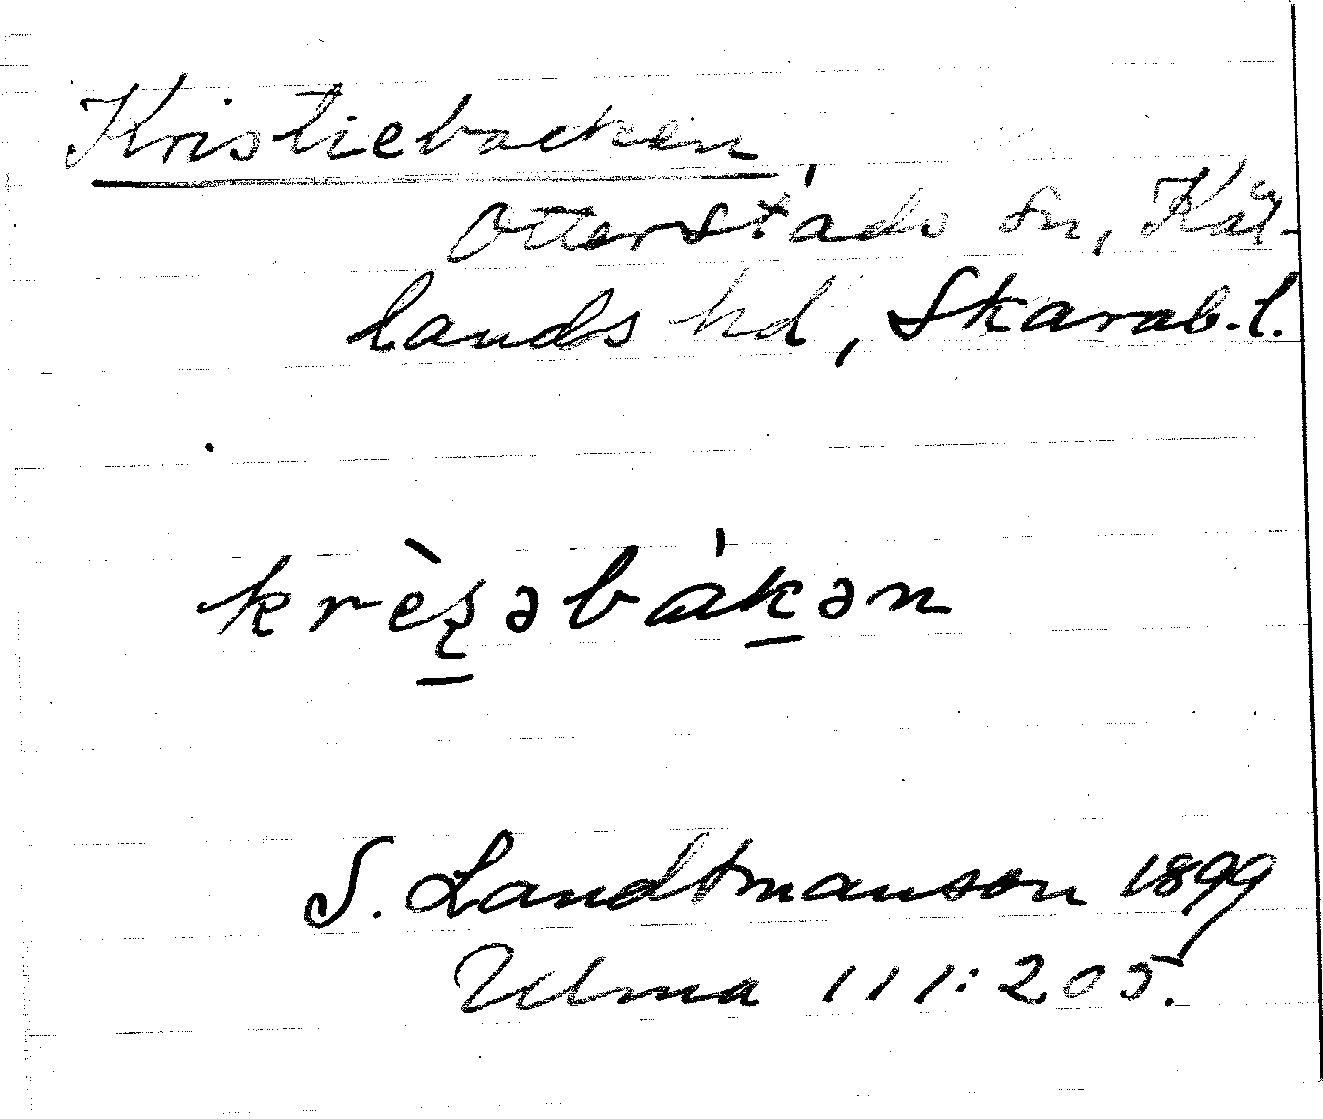 Kristiebacken,
Otterstads sn, Kål-
lands hd, Skarab. l.
krèʂəbákən
S. Landtmanson 1899
Ulma 111:205.